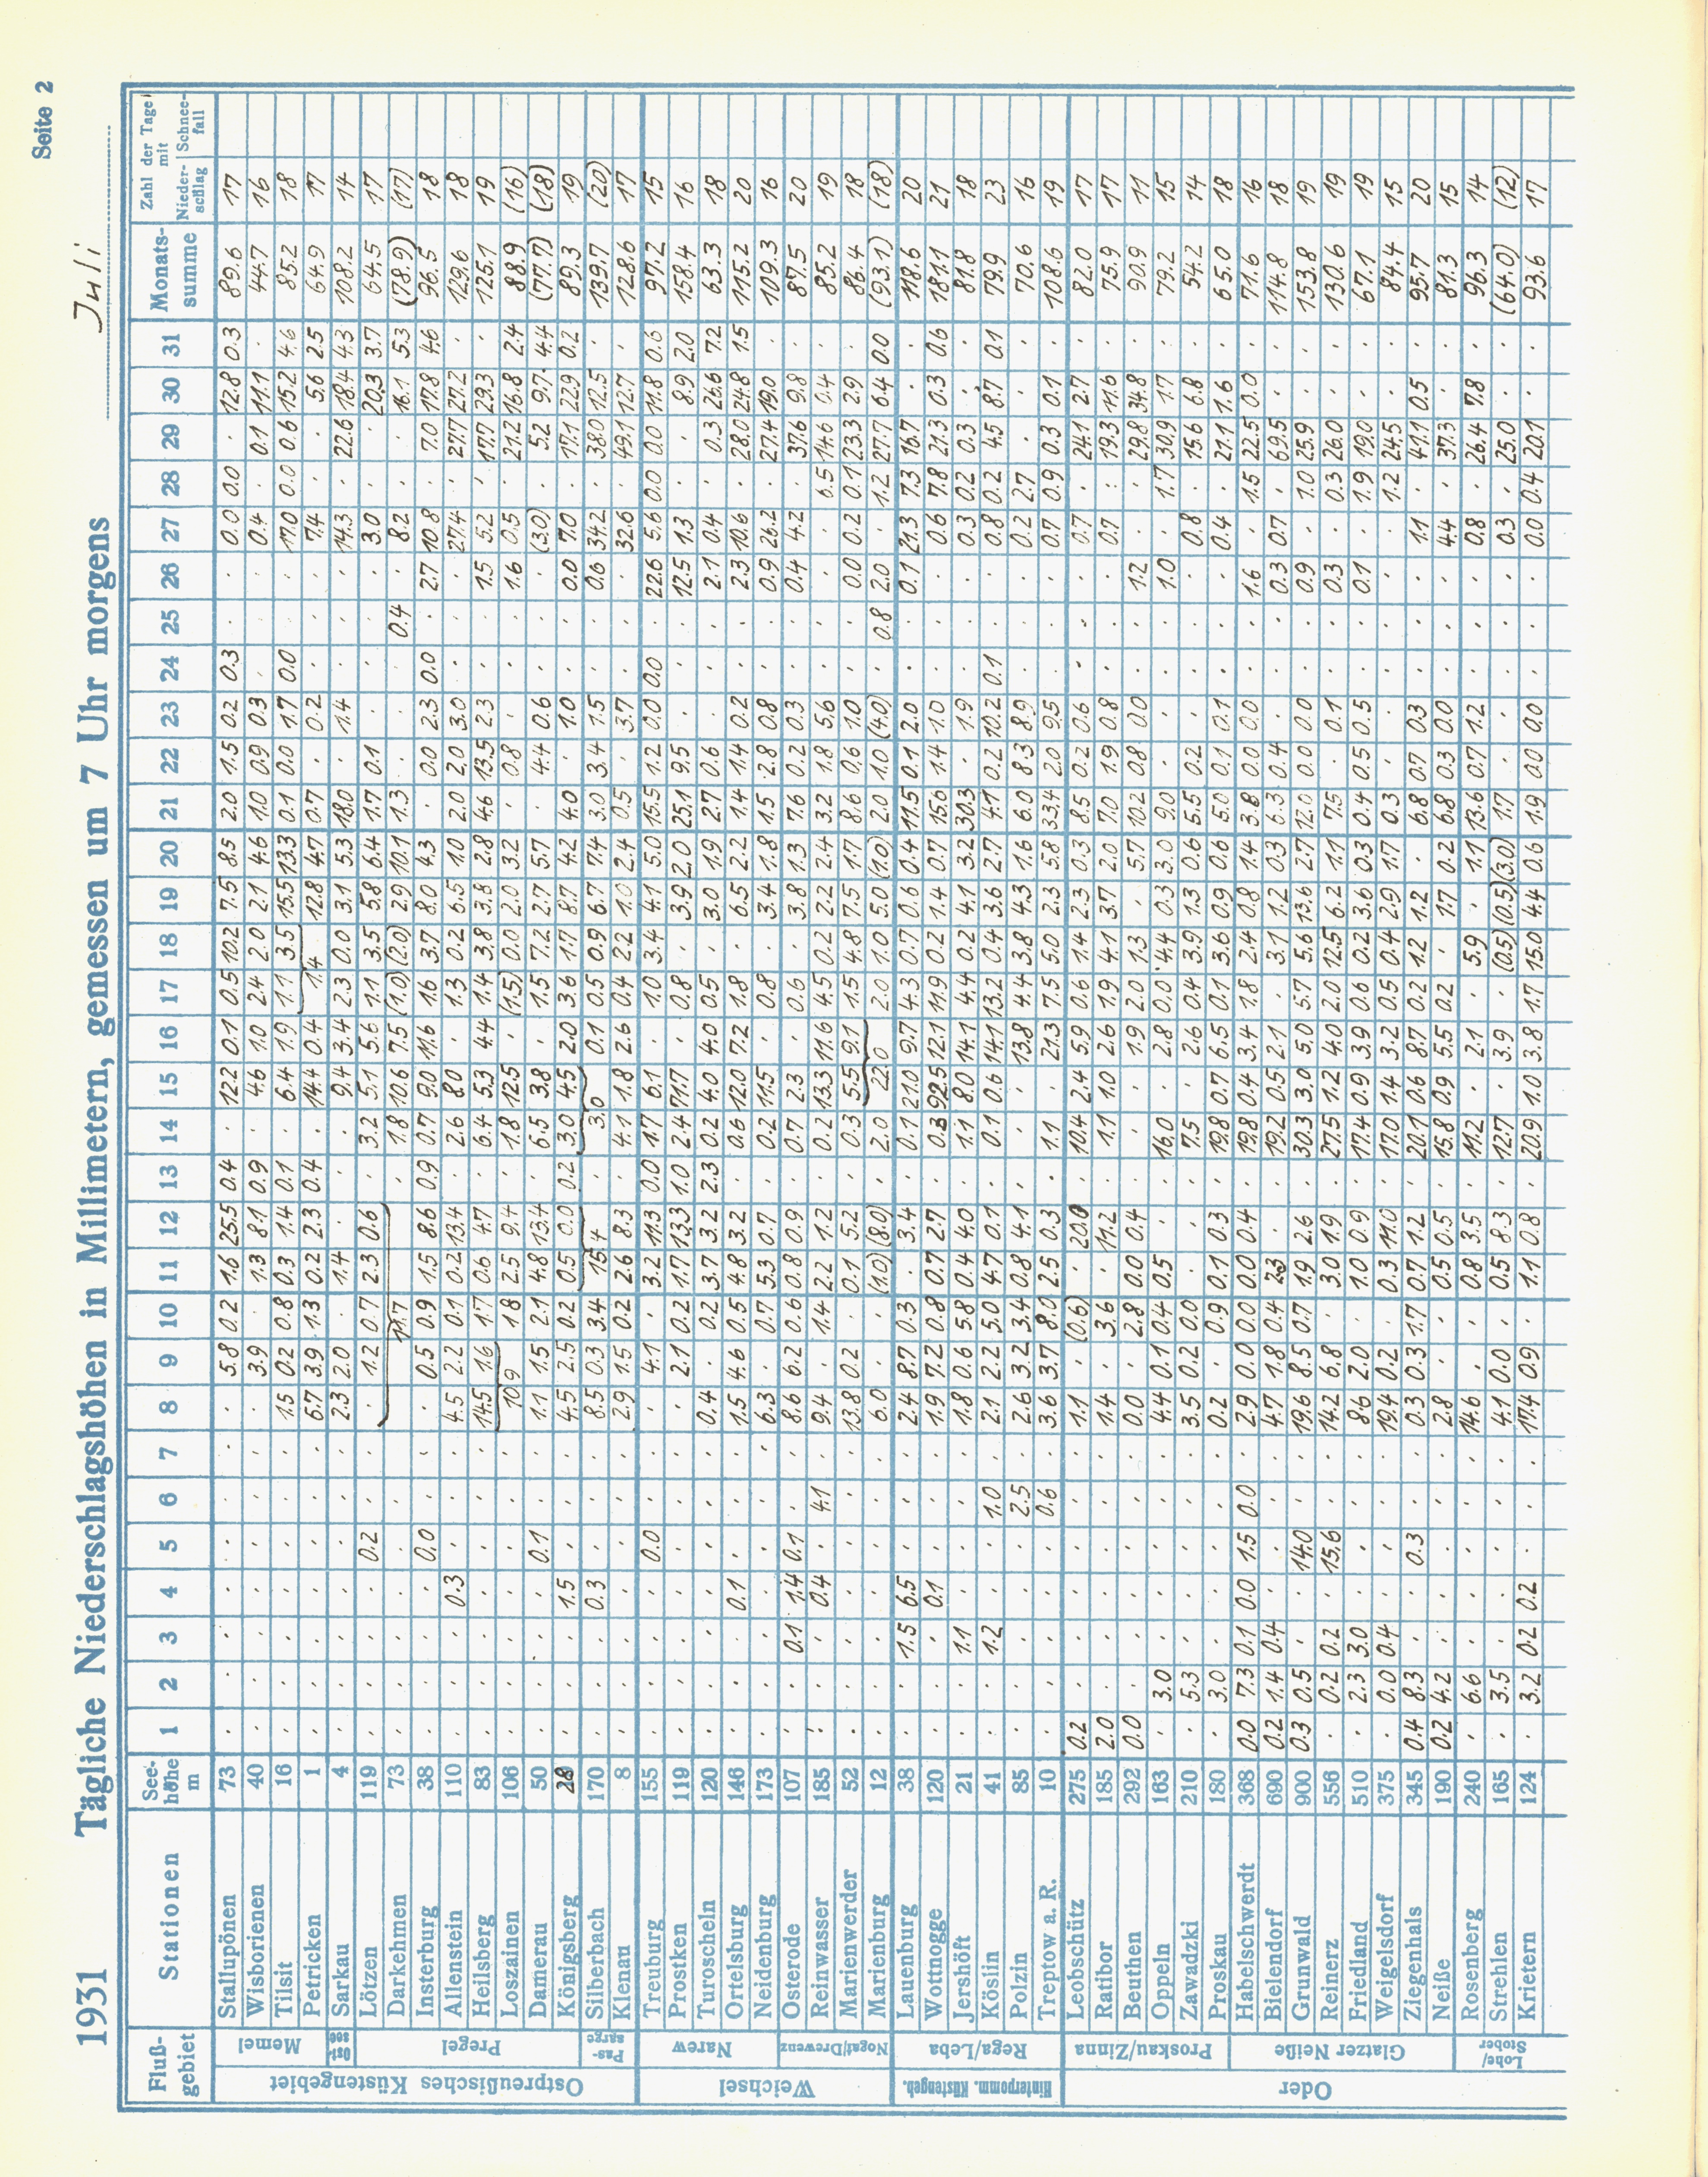 Seite 2
1931 Tägliche Niederschlagshöhen in Millimetern, gemessen um 7 Uhr morgens Juli
Fluß-gebiet Stationen See-höhe m 1 2 3 4 5 6 7 8 9 10 11 12 13 14 15 16 17 18 19 20 21 22 23 24 25 26 27 28 29 30 31 Monats-summe Zahl der Tage mit Nieder-schlag Schnee-fall
Ostpreußisches Küstengebiet
Memel
Stallupönen 73 . . . . . . . . 5.8 0.2 1.6 25.5 0.4 . 12.2 0.1 0.5 10.2 7.5 8.5 2.0 1.5 0.2 0.3 . . 0.0 0.0 . 12.8 0.3 89.6 17
Wisborienen 40 . . . . . . . . 3.9 . 1.3 8.1 0.9 . 4.6 1.0 2.4 2.0 2.1 4.6 1.0 0.9 0.3 . . . 0.4 . 0.1 11.1 . 44.7 16
Tilsit 16 . . . . . . . 1.5 0.2 0.8 0.3 1.4 0.1 . 6.4 1.9 1.1 3.5 15.5 13.3 0.1 0.0 1.7 0.0 . . 17.0 0.0 0.6 15.2 4.6 85.2 18
Petricken 1 . . . . . . . 6.7 3.9 1.3 0.2 2.3 0.4 . 14.4 0.4 1.4 12.8 4.7 0.7 . 0.2 . . . 7.4 . . 5.6 2.5 64.9 17
Ost-see
Sarkau 4 . . . . . . . 2.3 2.0 . 1.4 . . . 9.4 3.4 2.3 0.0 3.1 5.3 18.0 . 1.4 . . . 14.3 . 22.6 18.4 4.3 108.2 14
Pregel
Lötzen 119 . . . . 0.2 . . . 1.2 0.7 2.3 0.6 . 3.2 5.1 5.6 1.1 3.5 5.8 6.4 1.7 0.1 . . . . 3.0 . . 20.3 3.7 64.5 17
Darkehmen 73 . . . . . . . 11.7 . 1.8 10.6 7.5 (1.0) (2.0) 2.9 10.1 1.3 . . . 0.4 . 8.2 . . 16.1 5.3 (78.9) (17)
Insterburg 38 . . . . 0.0 . . . 0.5 0.9 1.5 8.6 0.9 0.7 9.0 11.6 1.6 3.7 8.0 4.3 . 0.0 2.3 0.0 . 2.7 10.8 . 7.0 17.8 4.6 96.5 18
Allenstein 110 . . . 0.3 . . . 4.5 2.2 0.1 0.2 13.4 . 2.6 8.0 . 1.3 0.2 6.5 1.0 2.0 2.0 3.0 . . . 27.4 . 27.7 27.2 . 129.6 18
Heilsberg 83 . . . . . . . 14.5 1.6 1.7 0.6 4.7 . 6.4 5.3 4.4 1.4 3.8 3.8 2.8 4.6 13.5 2.3 . . 1.5 5.2 . 17.7 29.3 . 125.1 19
Loszainen 106 . . . . . . . 10.9 1.8 2.5 9.4 . 1.8 12.5 . (1.5) 0.0 2.0 3.2 . 0.8 . . . 1.6 0.5 . 21.2 16.8 2.4 88.9 (16)
Damerau 50 . . . . 0.1 . . 1.1 1.5 2.1 4.8 13.4 . 6.5 3.8 . 1.5 7.2 2.7 5.7 . 4.4 0.6 . . . (3.0) . 5.2 9.7 4.4 (77.7) (18)
Königsberg 28 . . . 1.5 . . . 4.5 2.5 0.2 0.5 0.0 0.2 3.0 4.5 2.0 3.6 1.7 8.7 4.2 4.0 . 1.0 . . 0.0 7.0 . 17.1 22.9 0.2 89.3 19
Pas-sarge
Silberbach 170 . . . 0.3 . . . 8.5 0.3 3.4 15.4 . 3.0 0.1 0.5 0.9 6.7 7.4 3.0 3.4 1.5 . . 0.6 34.2 . 38.0 12.5 . 139.7 (20)
Klenau 8 . . . . . . . 2.9 1.5 0.2 2.6 8.3 . 4.1 1.8 2.6 0.4 2.2 1.0 2.4 0.5 . 3.7 . . . 32.6 . 49.1 12.7 . 128.6 17
Weichsel
Narew
Treuburg 155 . . . . 0.0 . . . 4.1 . 3.2 11.3 0.0 1.7 6.1 . 1.0 3.4 4.1 5.0 15.5 1.2 0.0 0.0 . 22.6 5.6 0.0 0.0 11.8 0.6 97.2 15
Prostken 119 . . . . . . . . 2.1 0.2 1.7 13.3 1.0 2.4 71.7 . 0.8 . 3.9 2.0 25.1 9.5 . . . 12.5 1.3 . . 8.9 2.0 158.4 16
Turoscheln 120 . . . . . . . 0.4 . 0.2 3.7 3.2 2.3 0.2 4.0 4.0 0.5 . 3.0 1.9 2.7 0.6 . . . 2.1 0.4 . 0.3 26.6 7.2 63.3 18
Ortelsburg 146 . . . 0.1 . . . 1.5 4.6 0.5 4.8 3.2 . 0.6 12.0 7.2 1.8 . 6.5 2.2 1.4 1.4 0.2 . . 2.3 10.6 . 28.0 24.8 1.5 115.2 20
Neidenburg 173 . . . . . . . 6.3 . 0.7 5.3 0.7 . 0.2 11.5 . 0.8 . 3.4 1.8 1.5 2.8 0.8 . . 0.9 26.2 . 27.4 19.0 . 109.3 16
Nogat/Drewenz
Osterode 107 . . 0.1 1.4 0.1 . . 8.6 6.2 0.6 0.8 0.9 . 0.7 2.3 . 0.6 . 3.8 1.3 7.6 0.2 0.3 . . 0.4 4.2 . 37.6 9.8 . 87.5 20
Reinwasser 185 . . . 0.4 . 4.1 . 9.4 . 1.4 2.2 1.2 . 0.2 13.3 11.6 4.5 0.2 2.2 2.4 3.2 1.8 5.6 . . . . 6.5 14.6 0.4 . 85.2 19
Marienwerder 52 . . . . . . . 13.8 0.2 . 0.1 5.2 . 0.3 5.5 9.1 1.5 4.8 7.5 1.7 8.6 0.6 1.0 . . 0.0 0.2 0.1 23.3 2.9 . 86.4 18
Marienburg 12 . . . . . . . 6.0 . . (1.0) (8.0) . 2.0 22.0 2.0 1.0 5.0 (1.0) 2.0 1.0 (4.0) . 0.8 2.0 . 1.2 27.7 6.4 0.0 (93.1) (18)
Hinterpomm. Küstengeb.
Rega/Leba
Lauenburg 38 . . 1.5 6.5 . . . 2.4 8.7 0.3 . 3.4 . 0.1 21.0 9.7 4.3 0.7 0.6 0.4 11.5 0.1 2.0 . . 0.1 21.3 7.3 16.7 . . 118.6 20
Wottnogge 120 . . . 0.1 . . . 1.9 7.2 0.8 0.7 2.7 . 0.3 92.5 12.1 11.9 0.2 1.4 0.7 15.6 1.4 1.0 . . . 0.6 7.8 21.3 0.3 0.6 181.1 21
Jershöft 21 . . 1.1 . . . . 1.8 0.6 5.8 0.4 4.0 . 1.1 8.0 14.1 4.4 0.2 4.1 3.2 30.3 . 1.9 . . . 0.3 0.2 0.3 . . 81.8 18
Köslin 41 . . 1.2 . . 1.0 . 2.1 2.2 5.0 4.7 0.1 . 0.1 0.6 14.1 13.2 0.4 3.6 2.7 4.1 0.2 10.2 0.1 . . 0.8 0.2 4.5 8.7 0.1 79.9 23
Polzin 85 . . . . . 2.5 . 2.6 3.2 3.4 0.8 4.1 . . . 13.8 4.4 3.8 4.3 1.6 6.0 8.3 8.9 . . . 0.2 2.7 . . . 70.6 16
Treptow a. R. 10 . . . . . 0.6 . 3.6 3.7 8.0 2.5 0.3 . 1.1 . 21.3 7.5 5.0 2.3 5.8 33.4 2.0 9.5 . . . 0.7 0.9 0.3 0.1 . 108.6 19
Oder
Proskau/Zinna
Leobschütz 275 0.2 . . . . . . 1.1 . (0.6) . 20.0 . 10.4 2.4 5.9 0.6 1.4 2.3 0.3 8.5 0.2 0.6 . . . 0.7 . 24.1 2.7 . 82.0 17
Ratibor 185 2.0 . . . . . . 1.4 . 3.6 . 11.2 . 1.1 1.0 2.6 1.9 4.1 3.7 2.0 7.0 1.9 0.8 . . . 0.7 . 19.3 11.6 . 75.9 17
Beuthen 292 0.0 . . . . . . 0.0 . 2.8 0.0 0.4 . . . 1.9 2.0 1.3 . 5.7 10.2 0.8 0.0 . . 1.2 . . 29.8 34.8 . 90.9 11
Oppeln 163 . 3.0 . . . . . 4.4 0.1 0.4 0.5 . . 16.0 . 2.8 0.0 4.4 0.3 3.0 9.0 . . . . 1.0 . 1.7 30.9 1.7 . 79.2 15
Zawadzki 210 . 5.3 . . . . . 3.5 0.2 0.0 . . . 7.5 . 2.6 0.4 3.9 1.3 0.6 5.5 0.2 . . . . 0.8 . 15.6 6.8 . 54.2 14
Proskau 180 . 3.0 . . . . . 0.2 . 0.9 0.1 0.3 . 19.8 0.7 6.5 0.1 3.6 0.9 0.6 5.0 0.1 0.1 . . . 0.4 . 21.1 1.6 . 65.0 18
Glatzer Neiße
Habelschwerdt 368 0.0 7.3 0.1 0.0 1.5 0.0 . 2.9 0.0 0.0 0.0 0.4 . 19.8 0.4 3.4 1.8 2.4 0.8 1.4 3.8 0.0 0.0 . . 1.6 . 1.5 22.5 0.0 . 71.6 16
Bielendorf 690 0.2 1.4 0.4 . . . . 4.7 1.8 0.4 2.3 . . 19.2 0.5 2.1 . 3.1 1.2 0.3 6.3 0.4 . . . 0.3 0.7 . 69.5 . . 114.8 18
Grunwald 900 0.3 0.5 . . 14.0 . . 19.6 8.5 0.7 1.9 2.6 . 30.3 3.0 5.0 5.7 5.6 13.6 2.7 12.0 0.0 0.0 . . 0.9 . 1.0 25.9 . . 153.8 19
Reinerz 556 . 0.2 0.2 . 15.6 . . 14.2 6.8 . 3.0 1.9 . 27.5 1.2 4.0 2.0 12.5 6.2 1.1 7.5 . 0.1 . . 0.3 . 0.3 26.0 . . 130.6 19
Friedland 510 . 2.3 3.0 . . . . 8.6 2.0 . 1.0 0.9 . 17.4 0.9 3.9 0.6 0.2 3.6 0.3 0.4 0.5 0.5 . . 0.1 . 1.9 19.0 . . 67.1 19
Weigelsdorf 375 . 0.0 0.4 . . . . 19.4 0.2 . 0.3 11.0 . 17.0 1.4 3.2 0.5 0.4 2.9 1.7 0.3 . . . . . . 1.2 24.5 . . 84.4 15
Ziegenhals 345 0.4 8.3 . . 0.3 . . 0.3 0.3 1.7 0.7 1.2 . 20.1 0.6 8.7 0.2 1.2 1.2 . 6.8 0.7 0.3 . . . 1.1 . 41.1 0.5 . 95.7 20
Neiße 190 0.2 4.2 . . . . . 2.8 . . 0.5 0.5 . 15.8 0.9 5.5 0.2 . 1.7 0.2 6.8 0.3 0.0 . . . 4.4 . 37.3 . . 81.3 15
Lohe/Stober
Rosenberg 240 . 6.6 . . . . . 14.6 . . 0.8 3.5 . 11.2 . 2.1 . 5.9 . 1.1 13.6 0.7 1.2 . . . 0.8 . 26.4 7.8 . 96.3 14
Strehlen 165 . 3.5 . . . . . 4.1 0.0 . 0.5 8.3 . 12.7 . 3.9 . (0.5) (0.5) (3.0) 1.7 . . . . . 0.3 . 25.0 . . (64.0) (12)
Krietern 124 . 3.2 0.2 0.2 . . . 17.4 0.9 . 1.1 0.8 . 20.9 1.0 3.8 1.7 15.0 4.4 0.6 1.9 0.0 0.0 . . . 0.0 0.4 20.1 . . 93.6 17